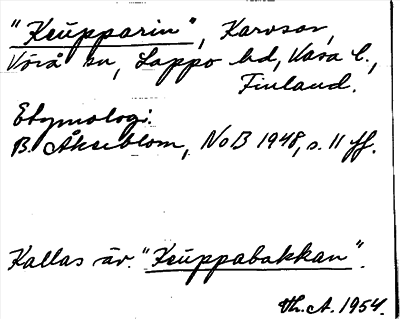 "Keupparin", Karvsor,
Vörå sn, Lappo hd, Vasa l.,
Finland.
Etymologi.
B. Åkerblom, NoB 1948, s. 11 ff.
Kallas äv. "Keuppabakkan".
Th. A. 1954.